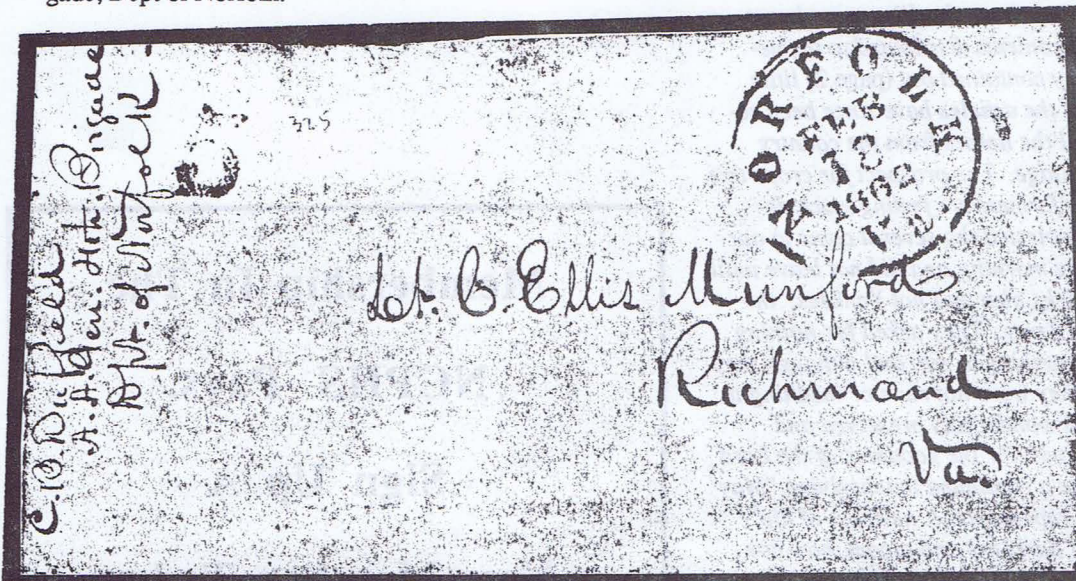 Dept of Norfolk.
C.B. Duffield
A.A. Gen. 4th. Brigade
Dept. of Norfolk
325
NORFOLK
FEB
18
1862
Va.
Lt. C. Ellis Munford
Richmond
Va.